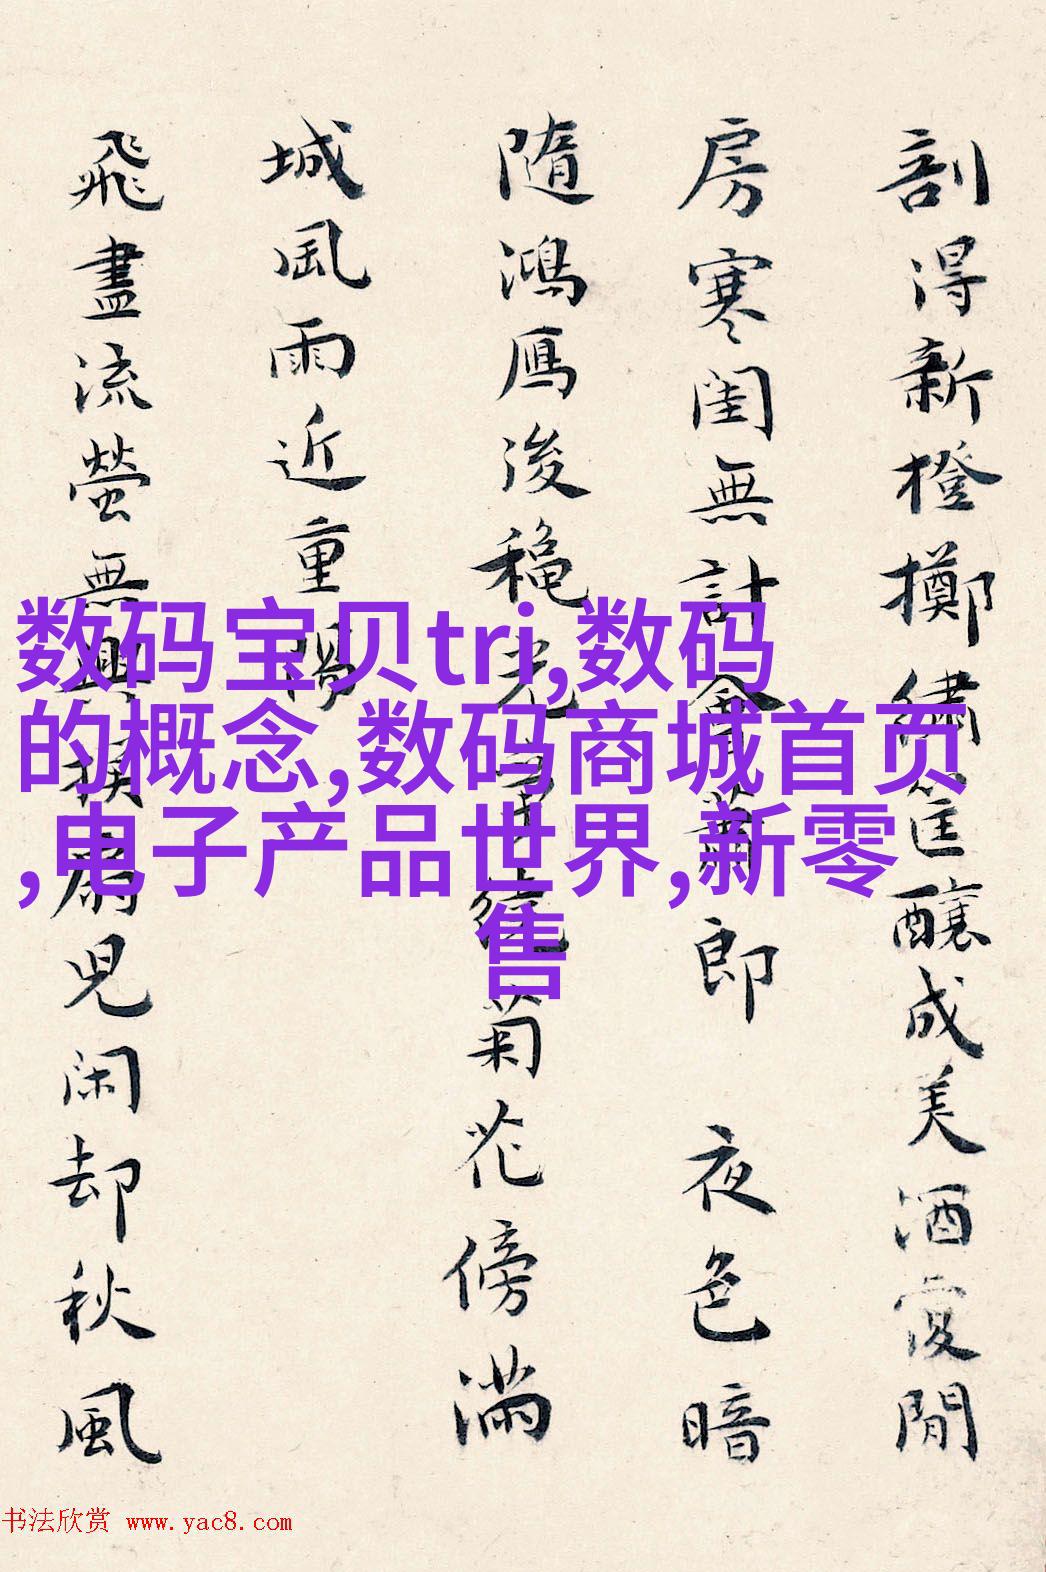 剖得新橙擲繡筐釀成美酒復閒
房寒閨無計會蕭郎 夜色暗
隨鴻鴈後穐光繞菊花傍滿
城風雨近重陽
飛盡流螢無興撲扇兒閑却秋風
数码宝贝tri,数码
的概念,数码商城首页
,电子产品世界,新零
售
书法欣赏 www.yac8.com